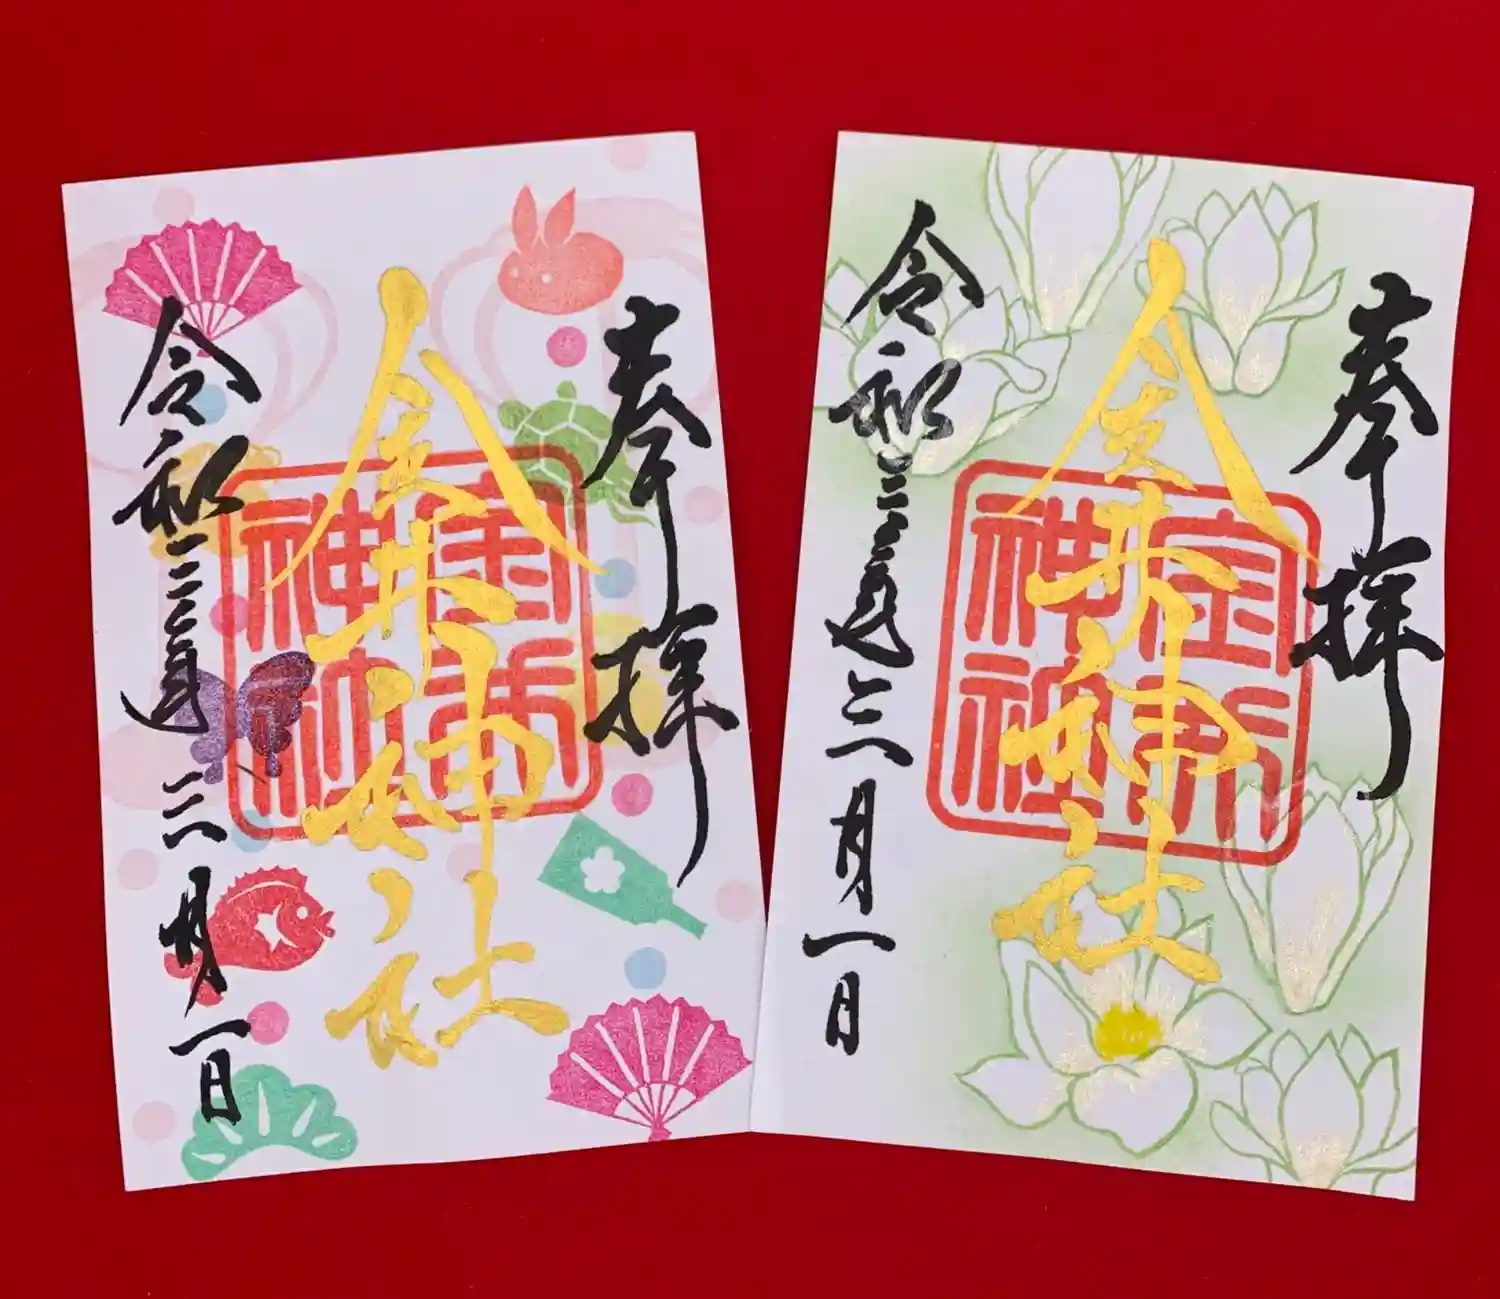 奉拝
金井神社
神社
令和 年三月一日
奉拝
金井神社
神社
令和 年三月一日